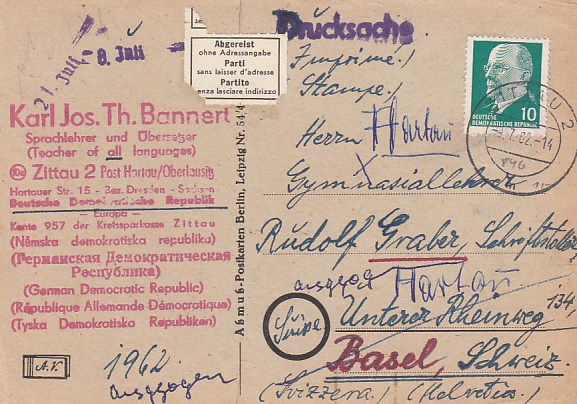 21. Juli
- 8. Juli
Drucksache
Abgereist
ohne Adressangabe
Parti
sans laisser d'adresse
Partito
senza lasciare indirizzo
Imprimé!
Stampe!
10
DEUTSCHE
DEMOKRATISCHE REPUBLIK
ZITTAU 2
62.-14
Karl Jos. Th. Bannert
Sprachlehrer und Übersetzer
(Teacher of all languages)
Zittau 2 Post Hartau/Oberlausitz
Hartauer Str. 15 - Bez. Dresden - Sachsen
Deutsche Demokratische Republik
- Europa -
Konto 957 der Kreissparkasse Zittau
(Německa demokratiska republika)
(Германская Демократическая
Республика)
(German Democratic Republic)
(République Allemande Démocratique)
(Tyska Demokratiska Republiken)
A.V.
1962
ausgezogen
Asmuß-Postkarten Berlin, Leipzig Nr. 54/4
Herrn Hartau
Gymnasiallehrer
Rudolf Graber, Schriftsteller
ausgezogen Hartau
Unterer Rheinweg 134,
Basel, Schweiz.
(Svizzera.) (Helvetia.)